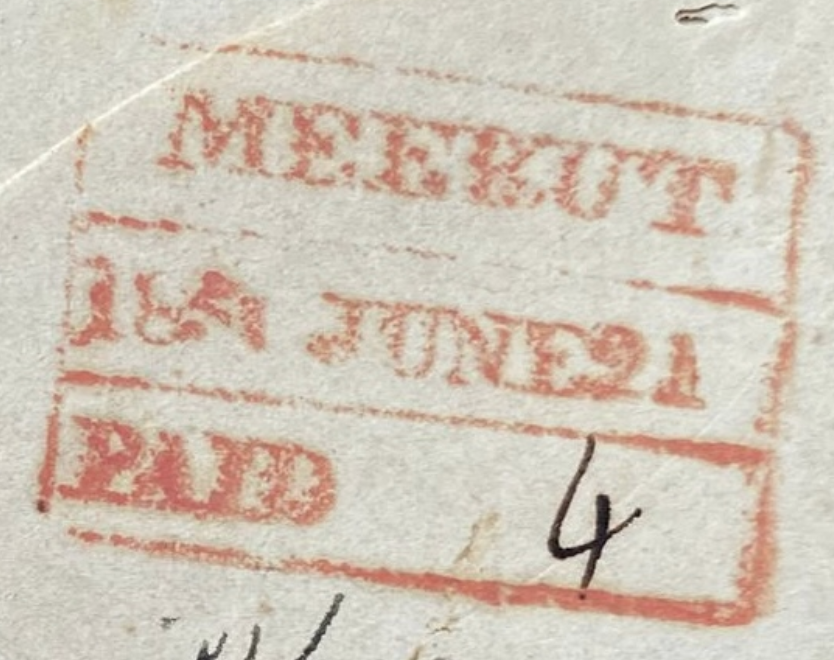 MEERUT
1847 JUNE 21
PAID 4